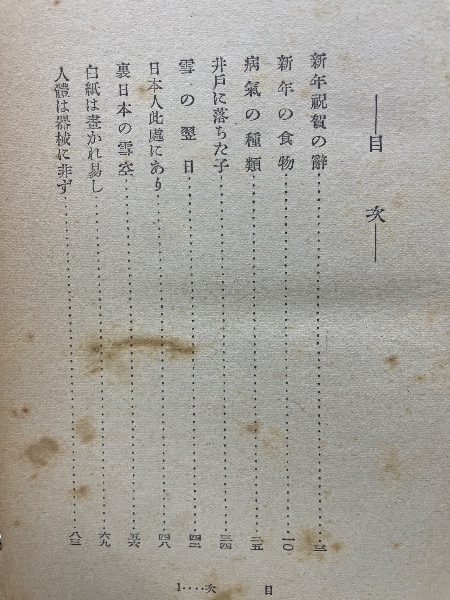 ——目次——
新年祝賀の辭……三
新年の食物……一〇
病氣の種類……二五
井戸に落ちた子……三四
雪の翌日……四二
日本人此處にあり……四八
裏日本の雪空……五六
白紙は畫かれ易し……六九
人體は器械に非ず……八三
目次….1